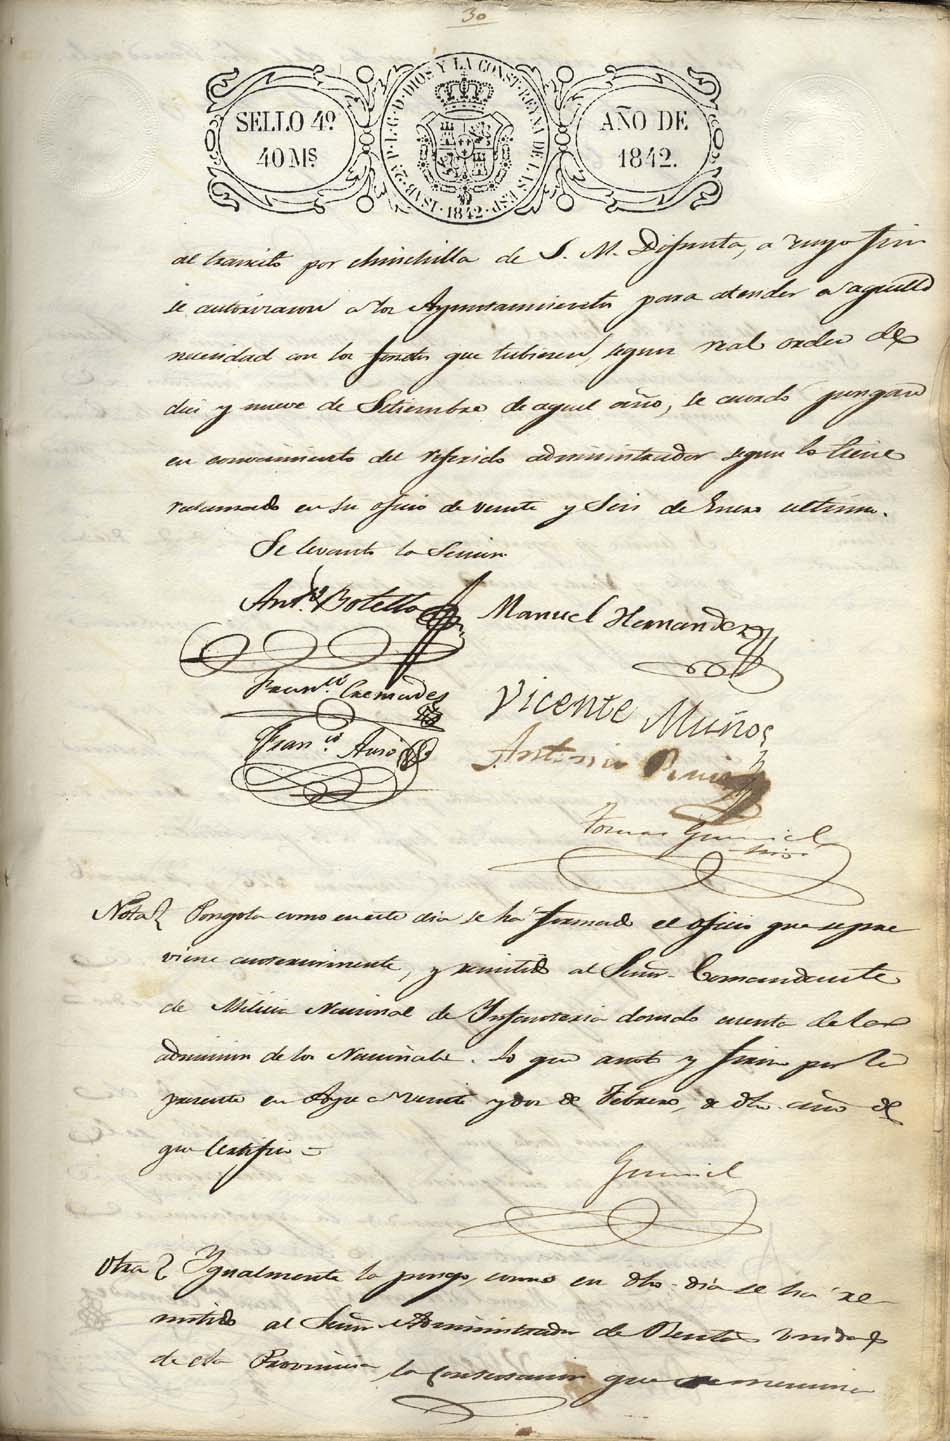 30
SELLO 4º
40 Ms
ISAB. 2ª P. L. G. D. DIOS Y LA CONST. REYNA DE LAS ESP.
1842
AÑO DE
1842.
al transito por chinchilla de S. M. Difunta, a cuyo fin
se autorizaron a los Ayuntamientos para atender a aquella
necesidad con los fondos que tubiesen, segun real orden de
diez y nueve de Setiembre de aquel año, se acordó pongase
en conocimiento del referido administrador segun lo tiene
reclamado en su oficio de veinte y seis de Enero ultimo.
Se levanto la Sesion
Antº Botella
Manuel Hernandez
Franco Cremades
Vicente Muños
Franco
Antonio
Tomas
Nota Pongola como en este dia se ha formado el oficio que se pre
viene anteriormente, y remitido al Señor Comandante
de Milicia Nacional de Infanteria dando cuenta de la
admision de los Nacionales. Lo que anoto y firmo por la
presente en Aspe a Veinte y dos de Febrero, de dho. año de
que Certifico =
Otra Ygualmente la pongo, como en dho. dia se ha re-
mitido al Señor Administrador de Rentas Unidas
de esta Provincia la contestacion que se menciona